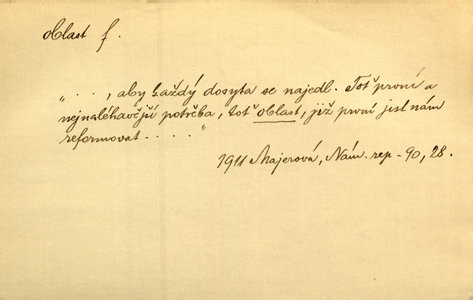 oblast f.
„. . . , aby každý dosyta se najedl. Toť první a
nejnaléhavější potřeba, toť oblast, již první jest nám
reformovat . . . . "
1911 Majerová, Nám. rep - 90, 28.